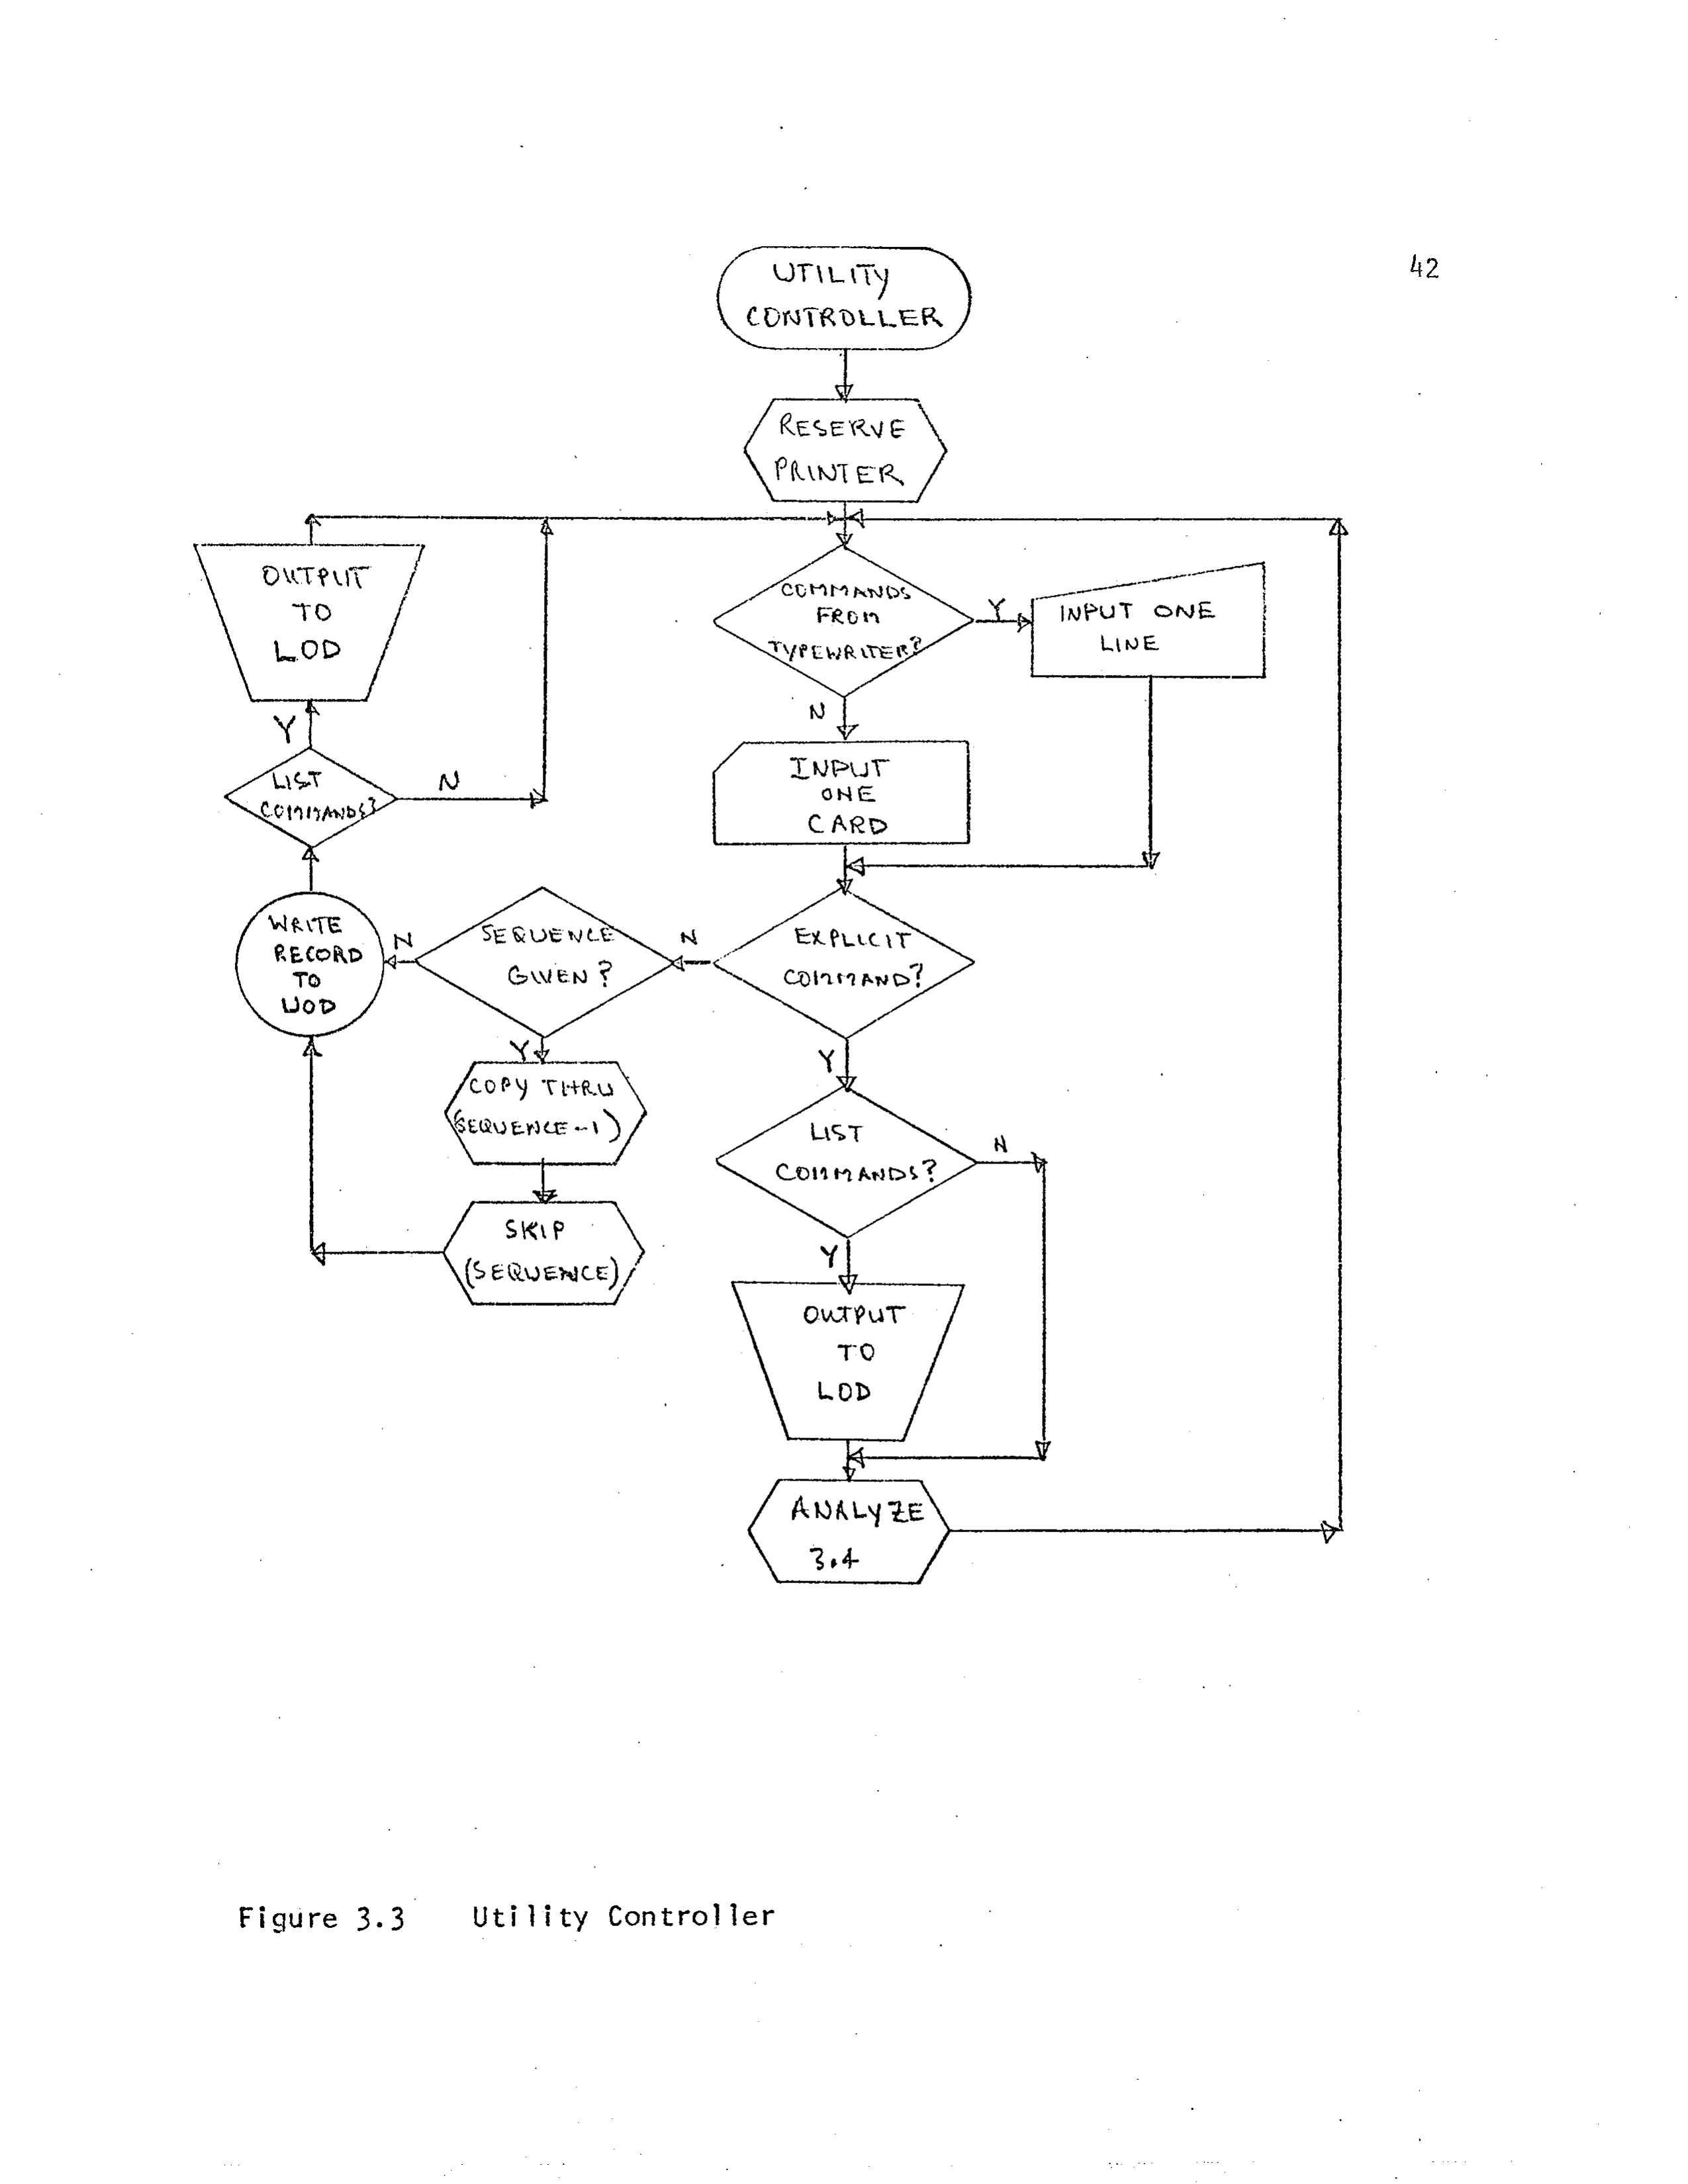 42
UTILITY
CONTROLLER
RESERVE
PRINTER
COMMANDS
FROM
TYPEWRITER?
Y
INPUT ONE
LINE
N
INPUT
ONE
CARD
OUTPUT
TO
LOD
Y
LIST
COMMANDS?
N
WRITE
RECORD
TO
UOD
N
SEQUENCE
GIVEN?
N
EXPLICIT
COMMAND?
Y
COPY THRU
(SEQUENCE-1)
SKIP
(SEQUENCE)
Y
LIST
COMMANDS?
N
Y
OUTPUT
TO
LOD
ANALYZE
3.4
Figure 3.3 Utility Controller